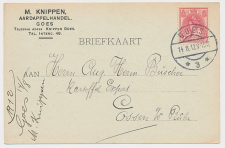 M. KNIPPEN,
AARDAPPELHANDEL,
GOES
TELEGRAM ADRES: KNIPPEN GOES.
TEL. INTERC. 49.
BRIEFKAART
GOES
3
Aan
Heeren Cug. Herm. Büscher
Kartoffel Export
Essen W. Ruhr
1912
Goes
M Knippen